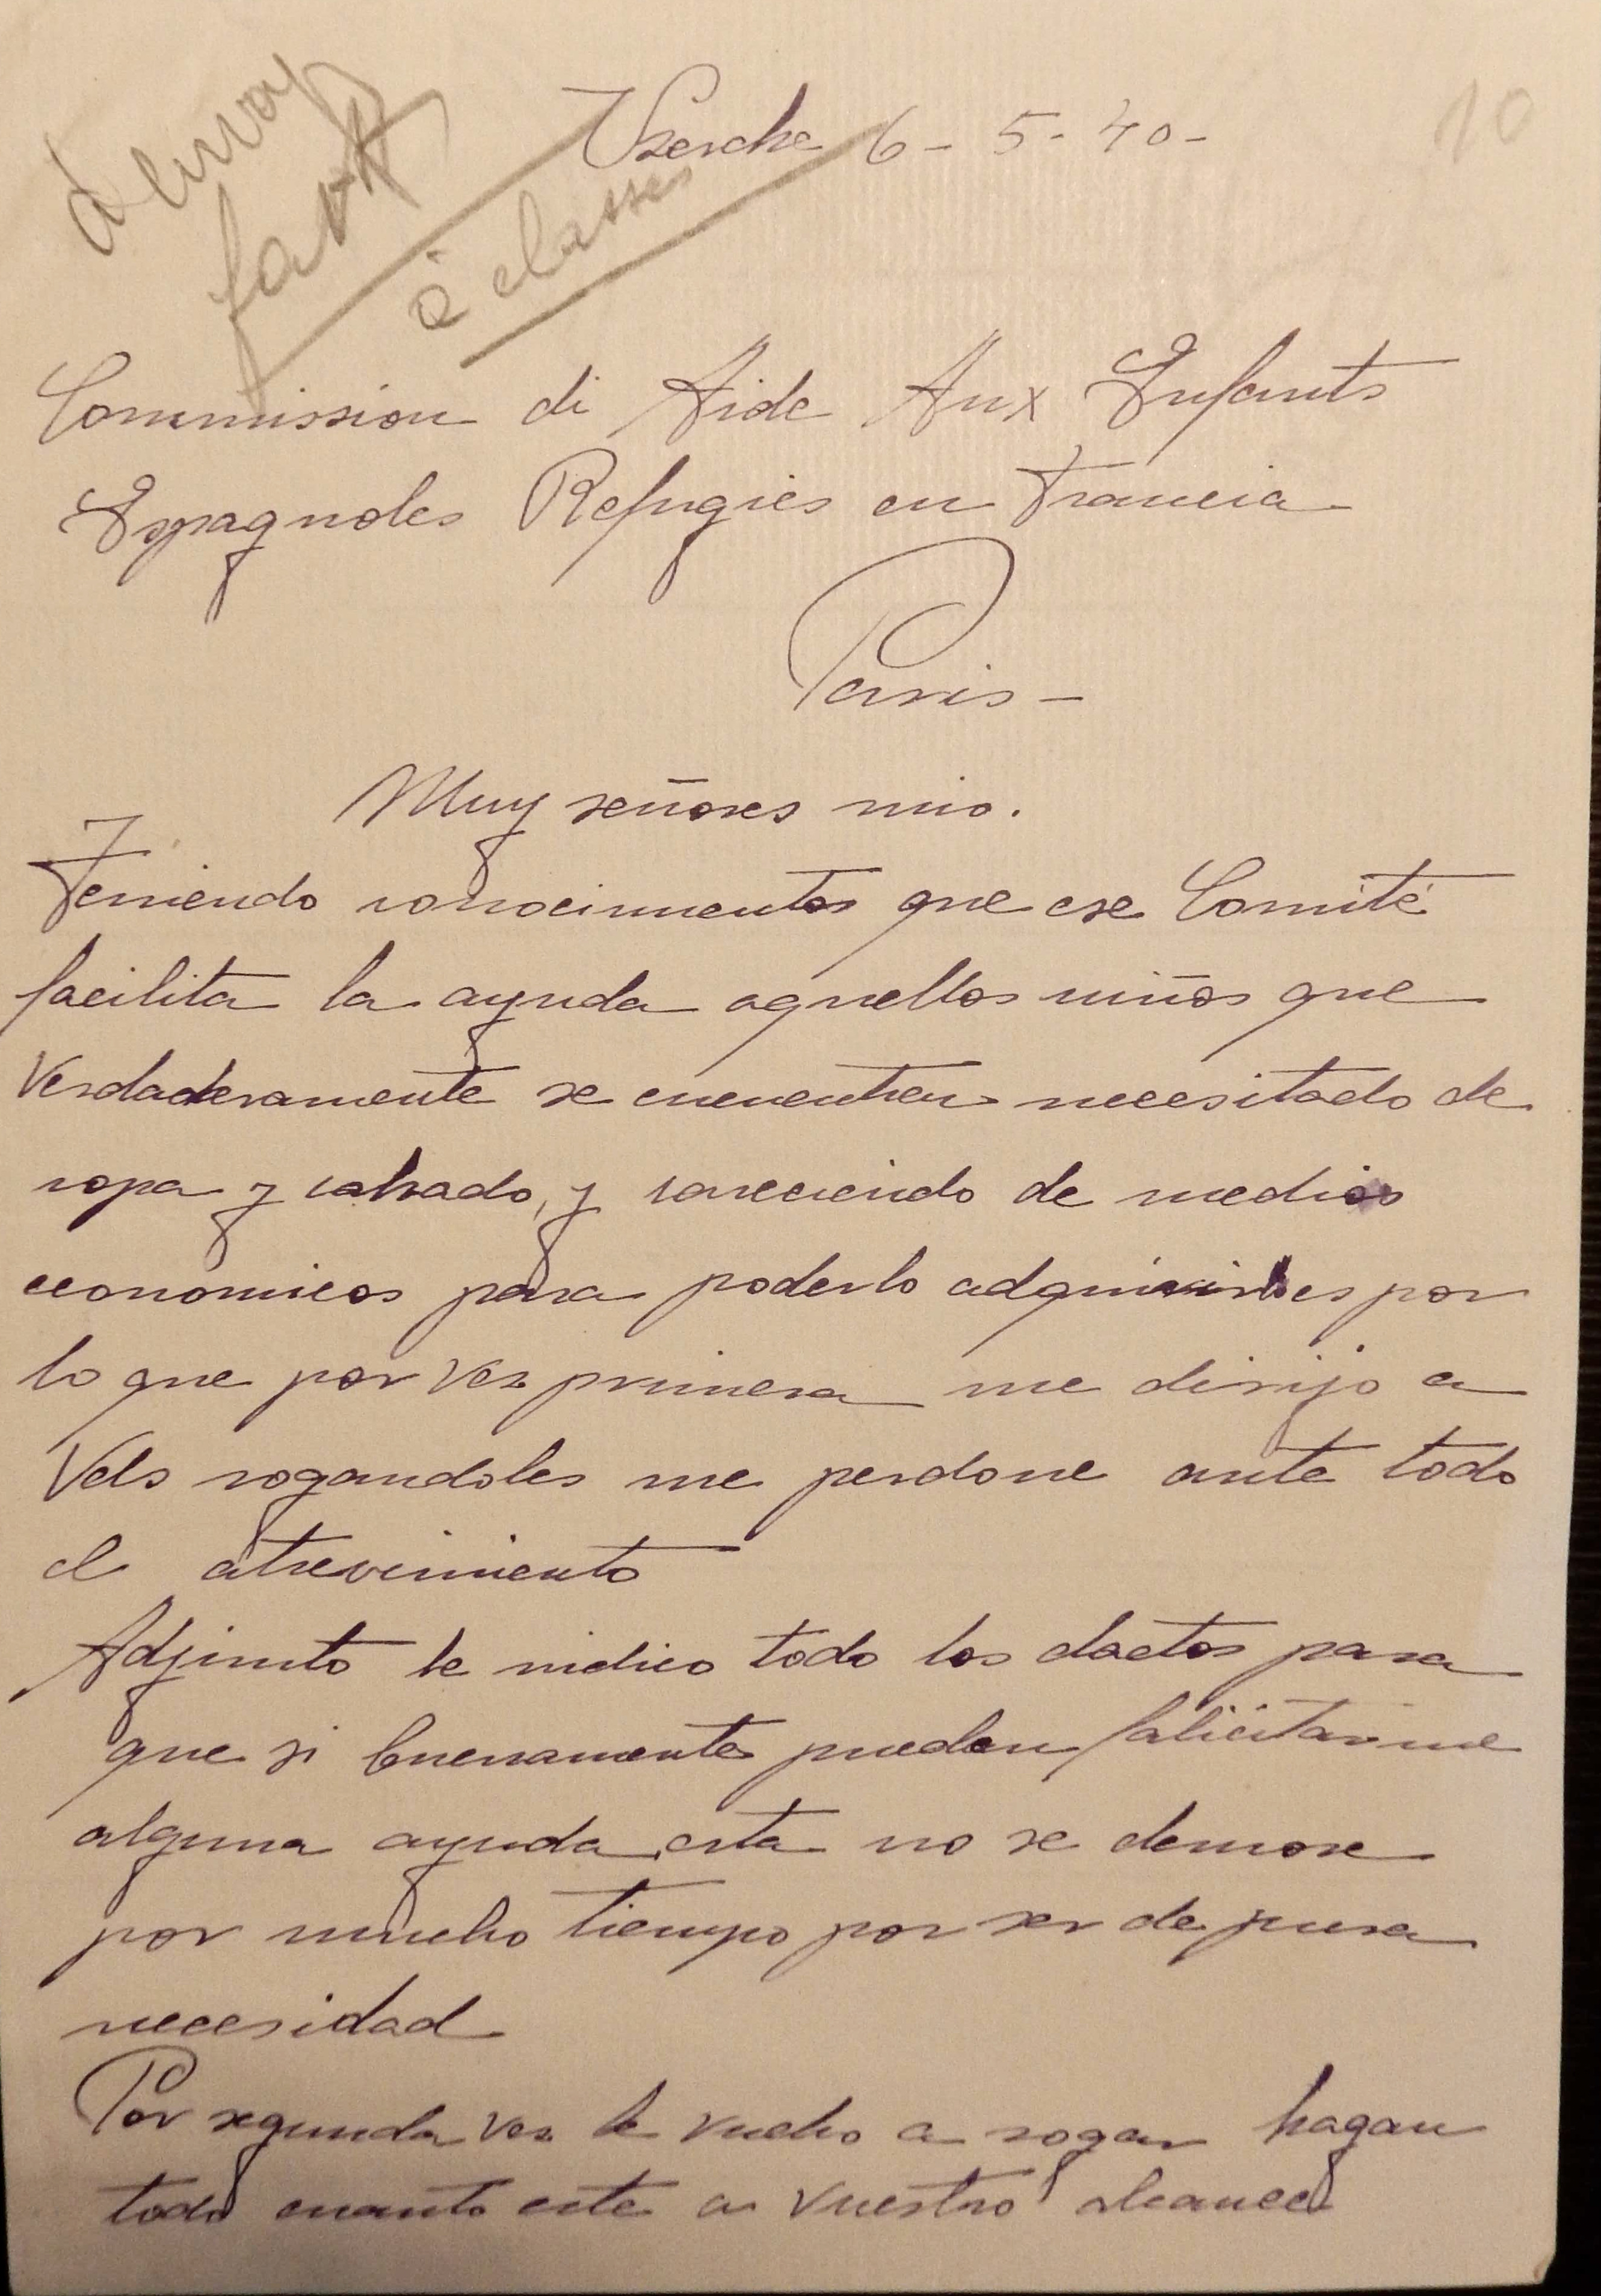 envoy
fait
à classer
10
Uzerche 6-5-40-
Commission di Aide Aux Enfants
Espagnoles Refugies en Francia-
Paris-
Muy señores mio.
Teniendo conocimientos que ese Comité
facilita la ayuda aquellos niños que
Verdaderamente se encuentren necesitado de
ropa y calzado, y careciendo de medios
economicos para poderlo adquirirles por
lo que por vez primera me dirijo a
Vds rogandoles me perdone ante todo
el atrevimiento
Adjunto le indico todo los dactos para
que si buenamente pueden falicitarme
alguna ayuda, esta no se demore
por mucho tiempo por ser de pura
necesidad
Por segunda vez le vuelvo a rogar hagan
todo cuanto este a vuestro alcance